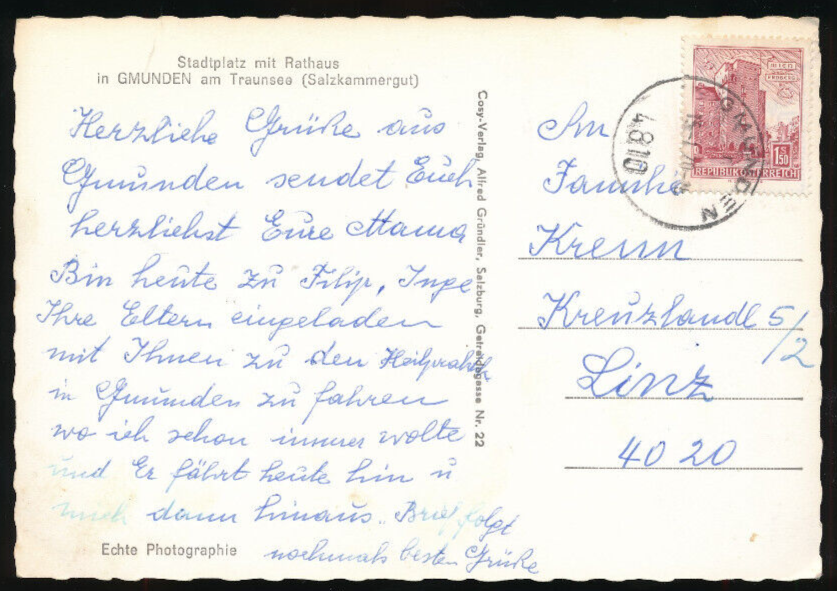 Stadtplatz mit Rathaus
in GMUNDEN am Traunsee (Salzkammergut)
Herzliche Grüße aus
Gmunden sendet Euch
herzlichst Eure Mama
Bin heute zu Filip, Inge
Ihre Eltern eingeladen
mit Ihnen zu den Heilprakt.
in Gmunden zu fahren
wo ich schon immer wolte
und Er fährt heute hin u
mich dann hinaus. Brief folgt
nochmals besten Grüße
Echte Photographie
Cosy-Verlag, Alfred Gründler, Salzburg, Getreidegasse Nr. 22
WIEN
1.50
REPUBLIK ÖSTERREICH
GMUNDEN
4810
An
Familie
Krenn
Kreuzlandl 5/2
Linz
4020